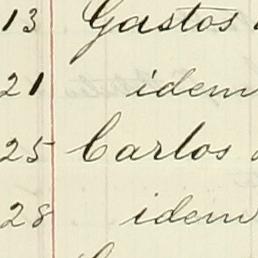 13 Gastos
21 idem
25 Carlos
28 idem